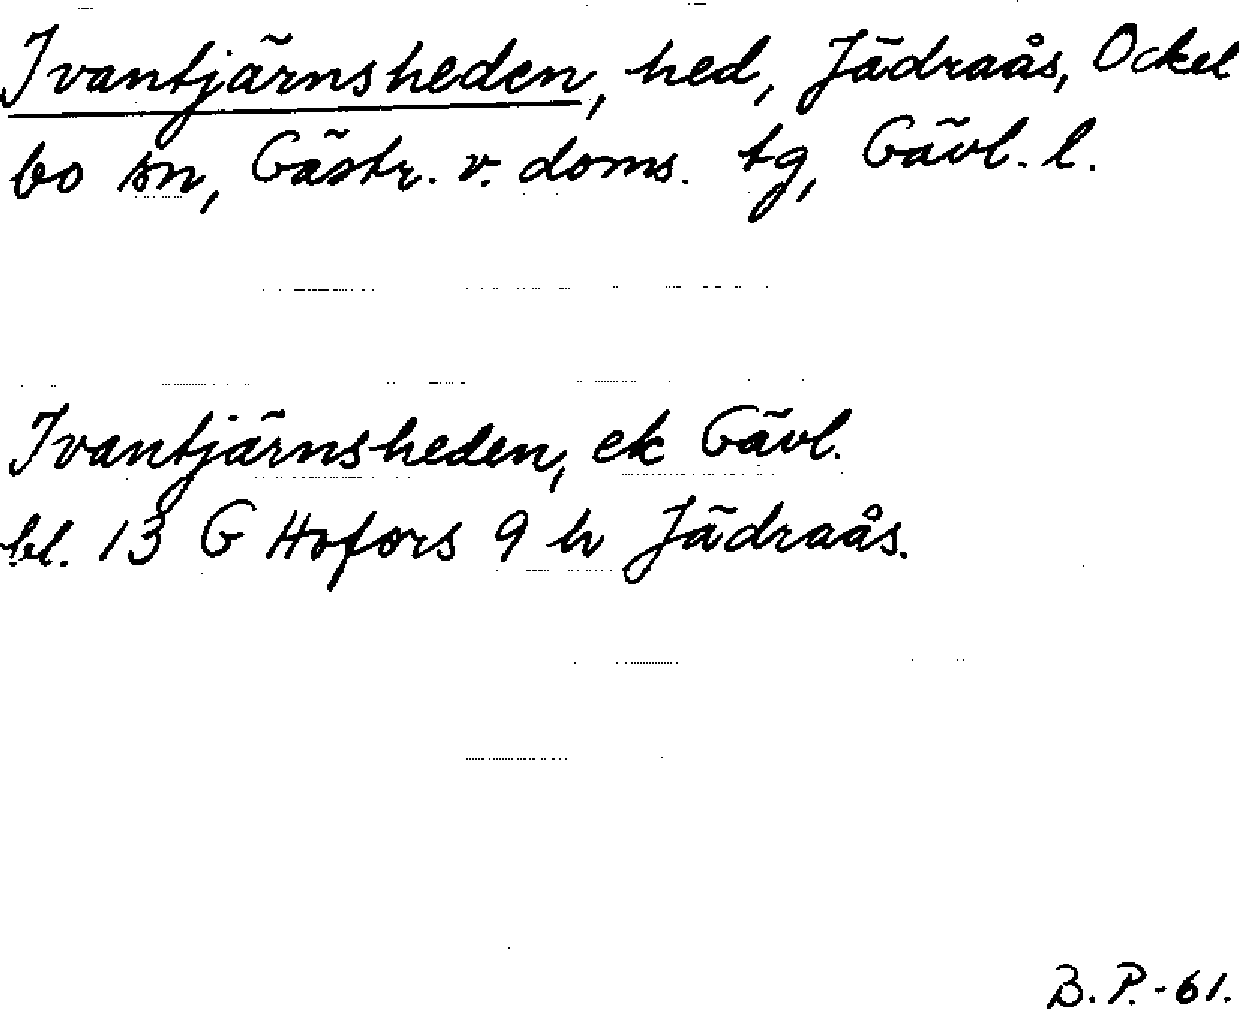 Ivantjärnsheden, hed, Jädraås, Ockel
bo sn, Gästr. v. doms. tg, Gävl. l.
Ivantjärnsheden, ek Gävl.
bl. 13 G Hofors 9 h Jädraås.
B. P. - 61.